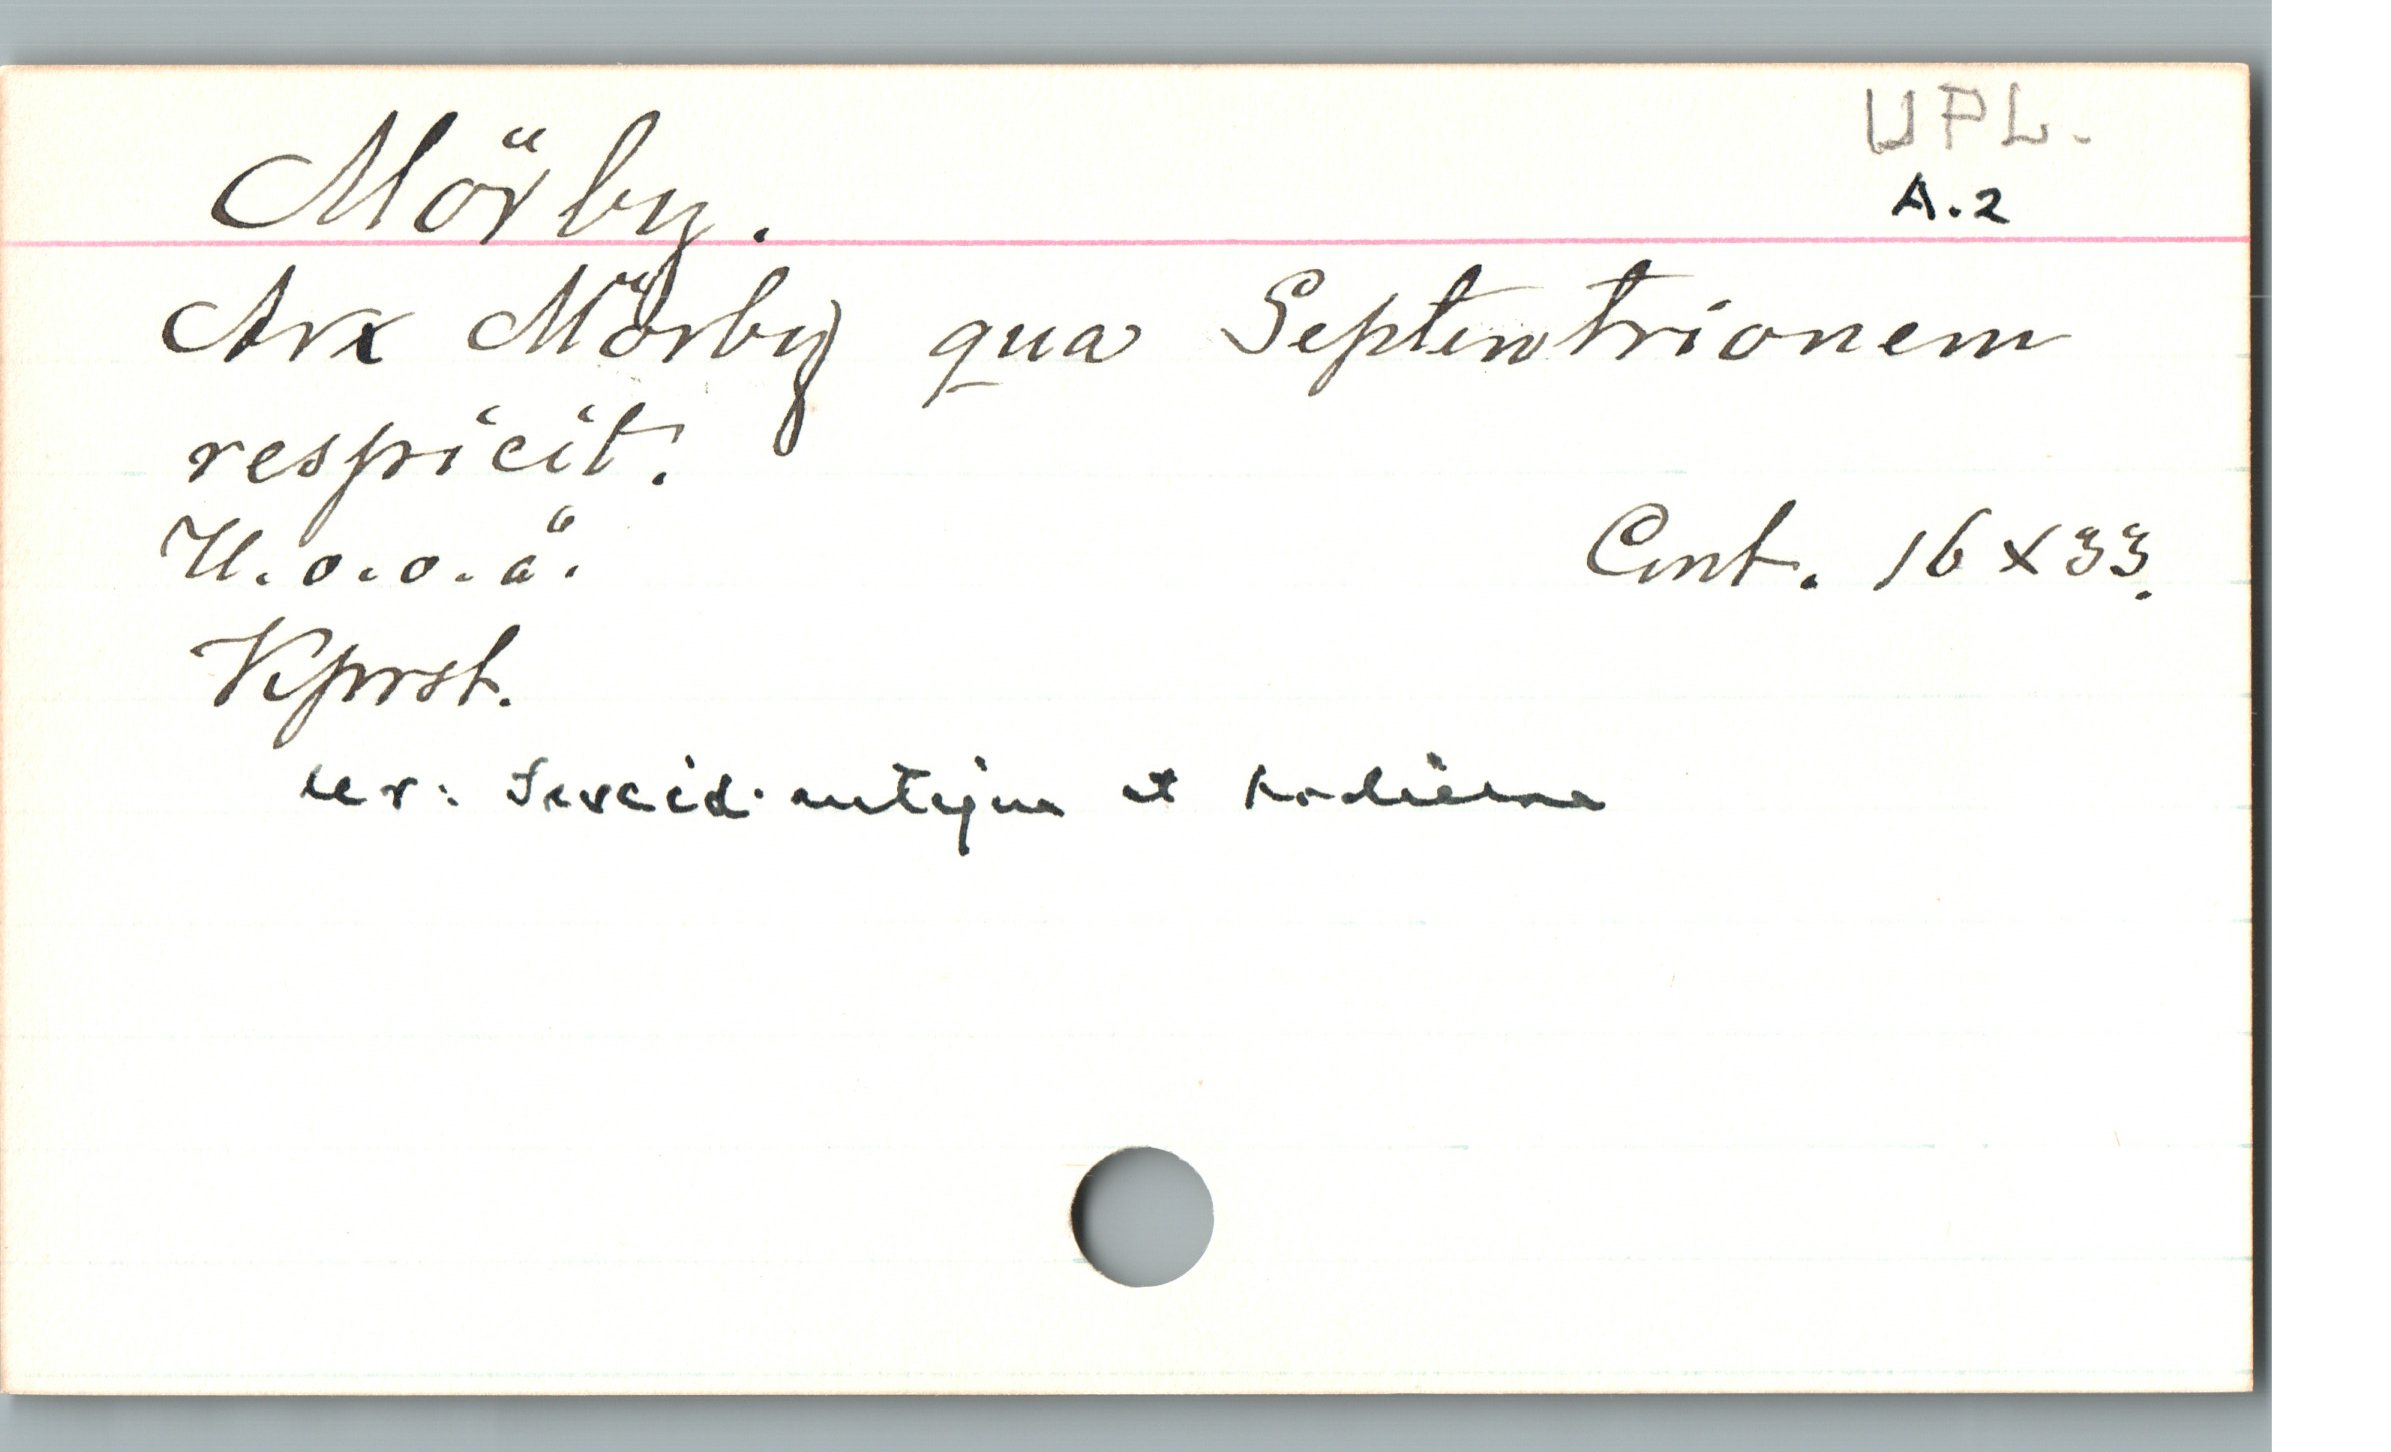 UPL.
Mörby.
A.2
Arx Mörby qua Septentrionem
respicit.
U.o.o.å. Cont. 16 x 33.
Kprst.
ur: Suecia antiqua et hodierna